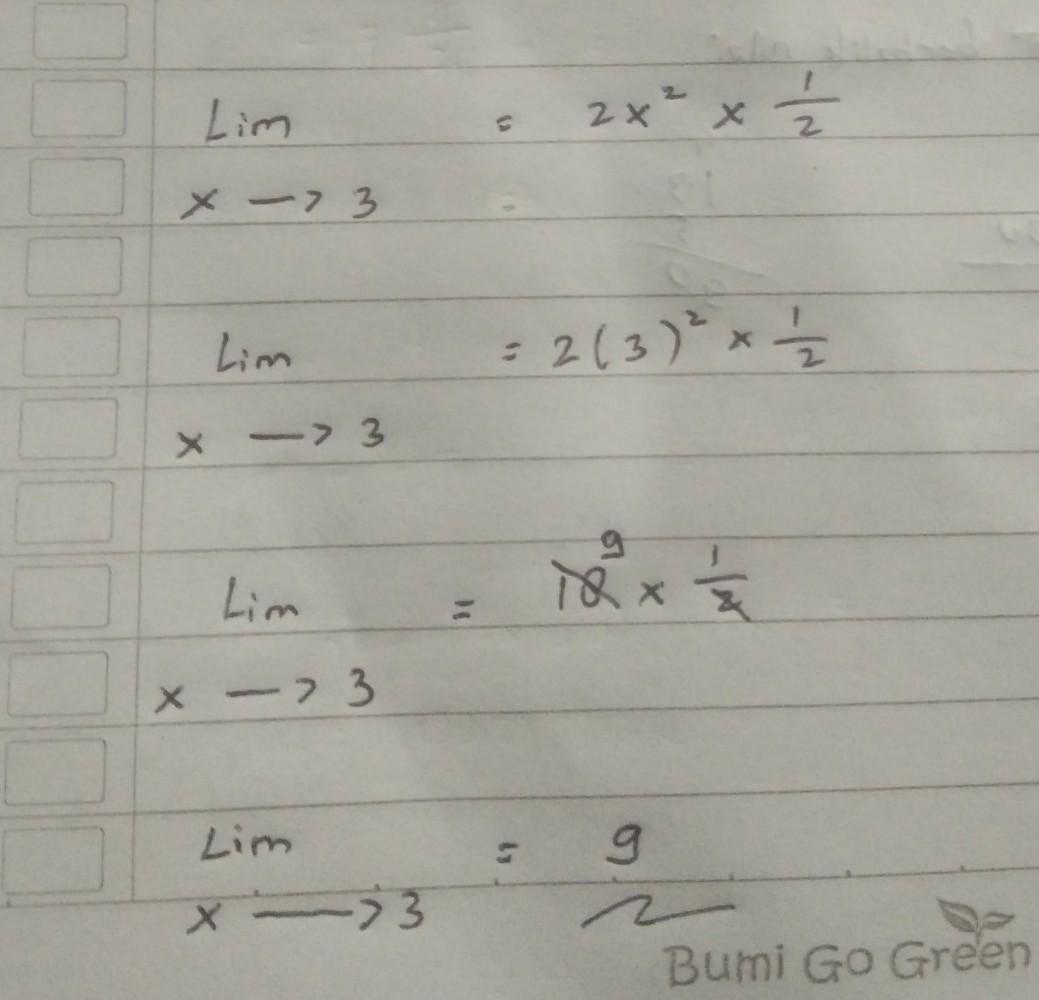 Lim = 2x² × 1/2
x —> 3
Lim = 2(3)² × 1/2
x —> 3
Lim = 18 9 × 1/2
x —> 3
Lim = 9
x —> 3
Bumi Go Green